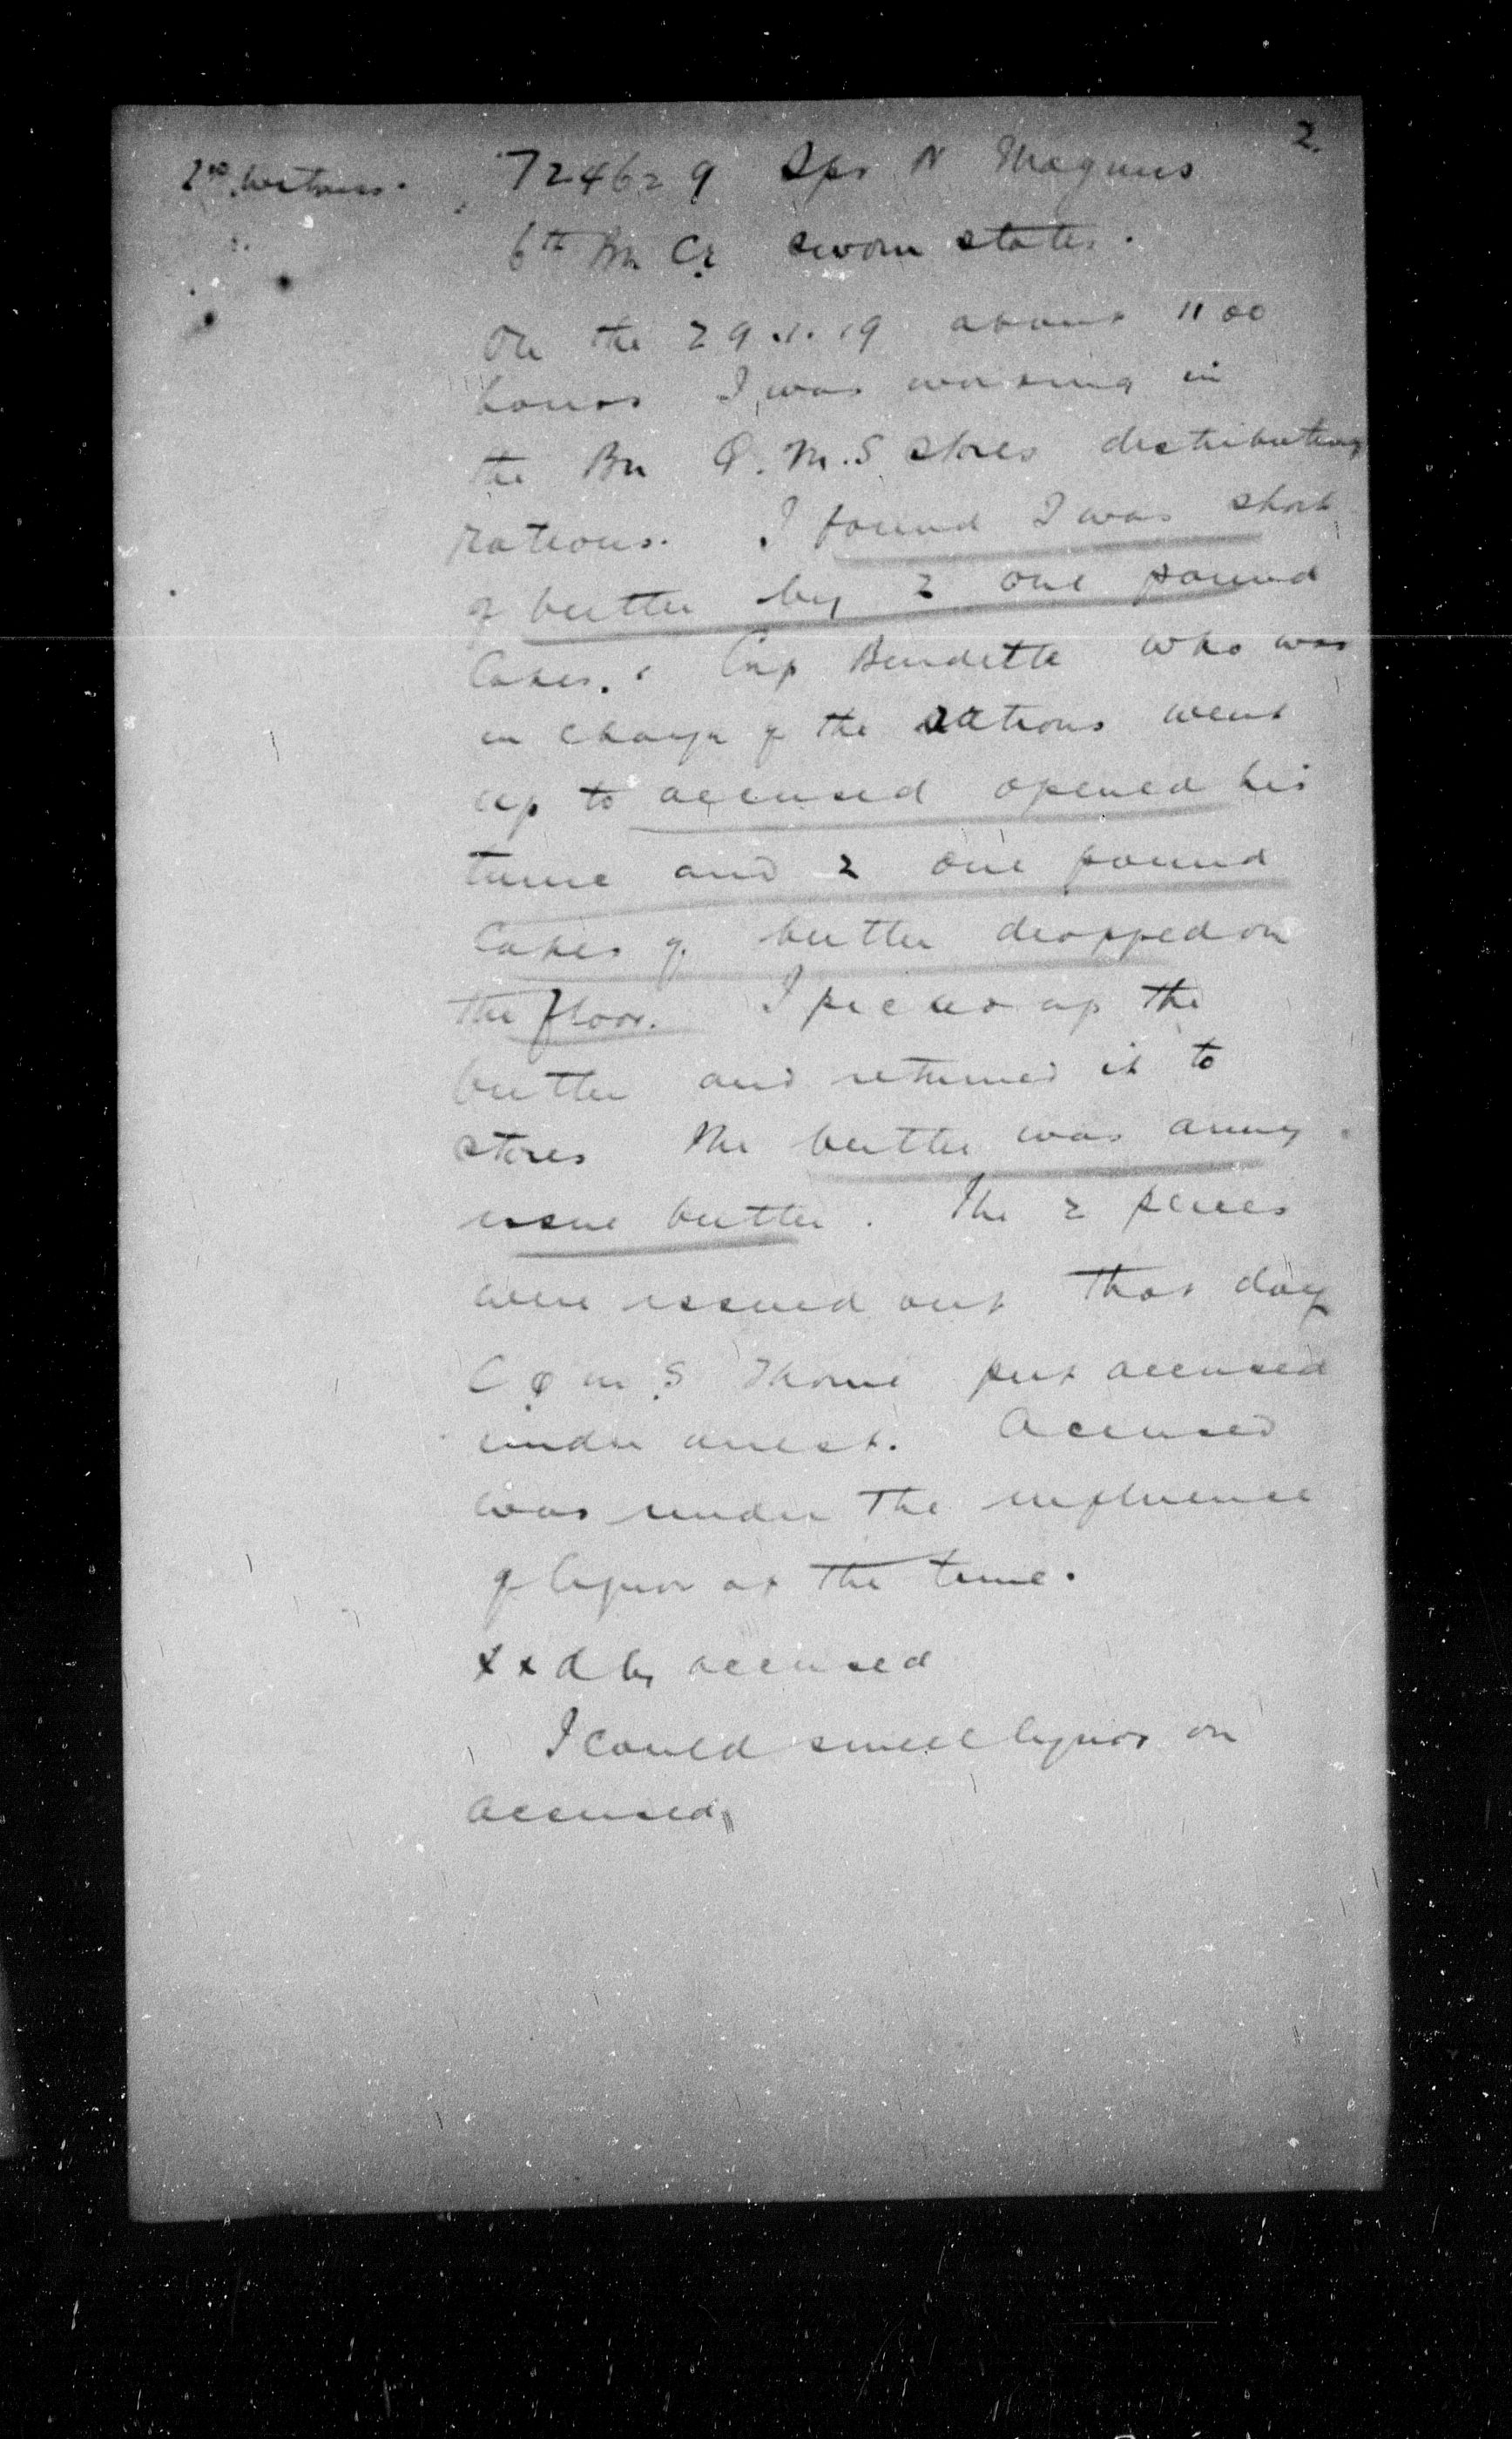 2.
2nd Witness. 724629 Spr N Magnus
6th Bn C.E sworn states.
On the 29.1.19 about 11 00
hours I was working in
the Bn Q.M.S stores distributing
rations. I found I was short
of butter by 2 one pound
Cakes. Cap Burdette who was
in charge of the rations went
up to accused opened his
tunic and 2 one pound
Cakes of butter dropped on
the floor. I picked up the
butter and returned it to
stores The butter was army
issue butter. The 2 pieces
were issued out that day
C Q M S Thorne put accused
under arrest. Accused
was under the influence
of liquor at the time.
XXd by accused
I could smell liquor on
accused